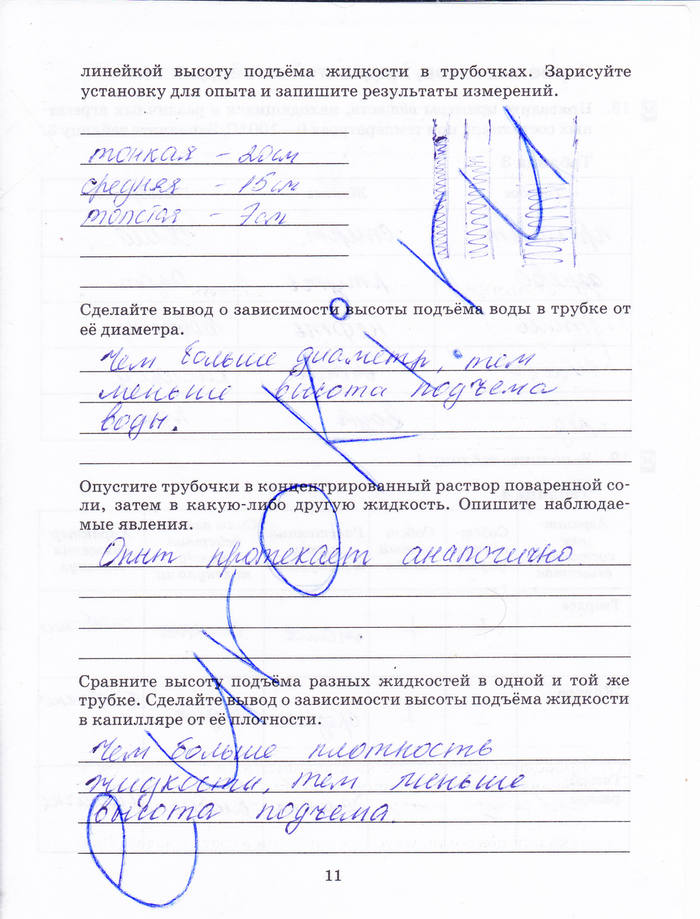 линейкой высоту подъёма жидкости в трубочках. Зарисуйте
установку для опыта и запишите результаты измерений.
тонкая - 20 см
средняя - 15 см
толстая - 7 см
Сделайте вывод о зависимости высоты подъёма воды в трубке от
её диаметра.
Чем больше диаметр, тем
меньше высота подъема
воды.
Опустите трубочки в концентрированный раствор поваренной со-
ли, затем в какую-либо другую жидкость. Опишите наблюдае-
мые явления.
Опыт протекает аналогично
Сравните высоту подъёма разных жидкостей в одной и той же
трубке. Сделайте вывод о зависимости высоты подъёма жидкости
в капилляре от её плотности.
Чем больше плотность
жидкости, тем меньше
высота подъема.
11